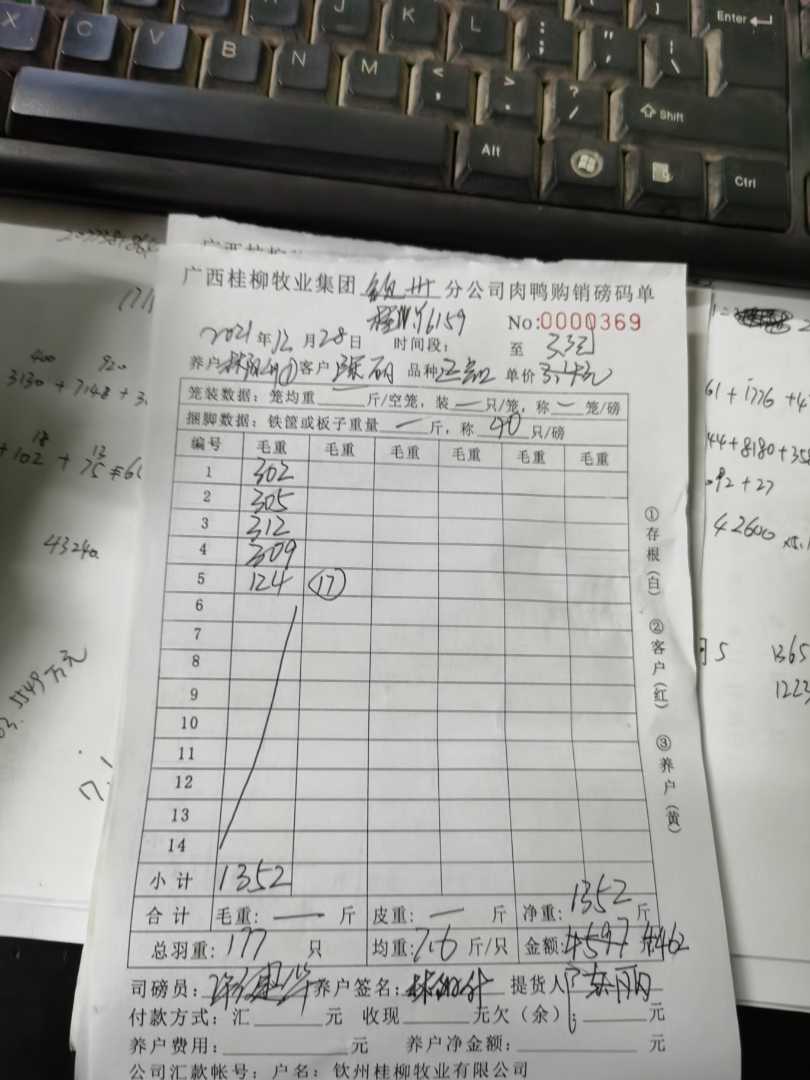 X C V B N M K L Enter
Alt Shift Ctrl
3130 + 7148 + 3
+ 102 + 75
43240
5549万元
61 + 1776 + 4
44 + 8180 + 358
92 + 27
42600
5 1365
1223
广西桂柳牧业集团 钦州 分公司肉鸭购销磅码单
6159 No:0000369
2021年12月28日 时间段: 至 3.3元
养户 客户 陈丽 品种 单价 3.4元
笼装数据: 笼均重 — 斤/空笼, 装 — 只/笼, 称 — 笼/磅
捆脚数据: 铁筐或板子重量 — 斤, 称 40 只/磅
编号 毛重 毛重 毛重 毛重 毛重 毛重
1 302
2 305
3 312
4 309
5 124 17
6
7
8
9
10
11
12
13
14
小计 1352
合计 毛重: — 斤 皮重: — 斤 净重: 1352 斤
总羽重: 177 只 均重: 7.6 斤/只 金额: 4597 4462
司磅员: 养户签名: 提货人: 陈丽
付款方式: 汇 元 收现 元欠(余): 元
养户费用: 元 养户净金额: 元
公司汇款帐号: 户名: 钦州桂柳牧业有限公司
①存根(白) ②客户(红) ③养户(黄)